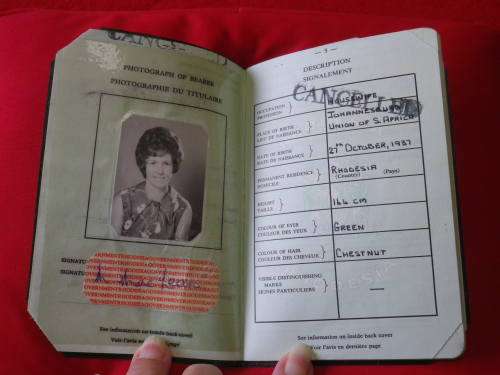 CANCELLED
PHOTOGRAPH OF BEARER
PHOTOGRAPHIE DU TITULAIRE
SIGNATU
SIGNATU
See information on inside back cover
Voir l'avis en dernière page
— 3 —
DESCRIPTION
SIGNALEMENT
CANCELLED
OCCUPATION
PROFESSION
HOUSEWIFE
PLACE OF BIRTH
LIEU DE NAISSANCE
JOHANNESBURG
UNION OF S. AFRICA
DATE OF BIRTH
DATE DE NAISSANCE
27TH OCTOBER, 1937
PERMANENT RESIDENCE
DOMICILE
RHODESIA
(Country) (Pays)
HEIGHT
TAILLE
164 CM
COLOUR OF EYES
COULEUR DES YEUX
GREEN
COLOUR OF HAIR
COULEUR DES CHEVEUX
CHESTNUT
VISIBLE DISTINGUISHING
MARKS
SIGNES PARTICULIERS
—
See information on inside back cover
Voir l'avis en dernière page